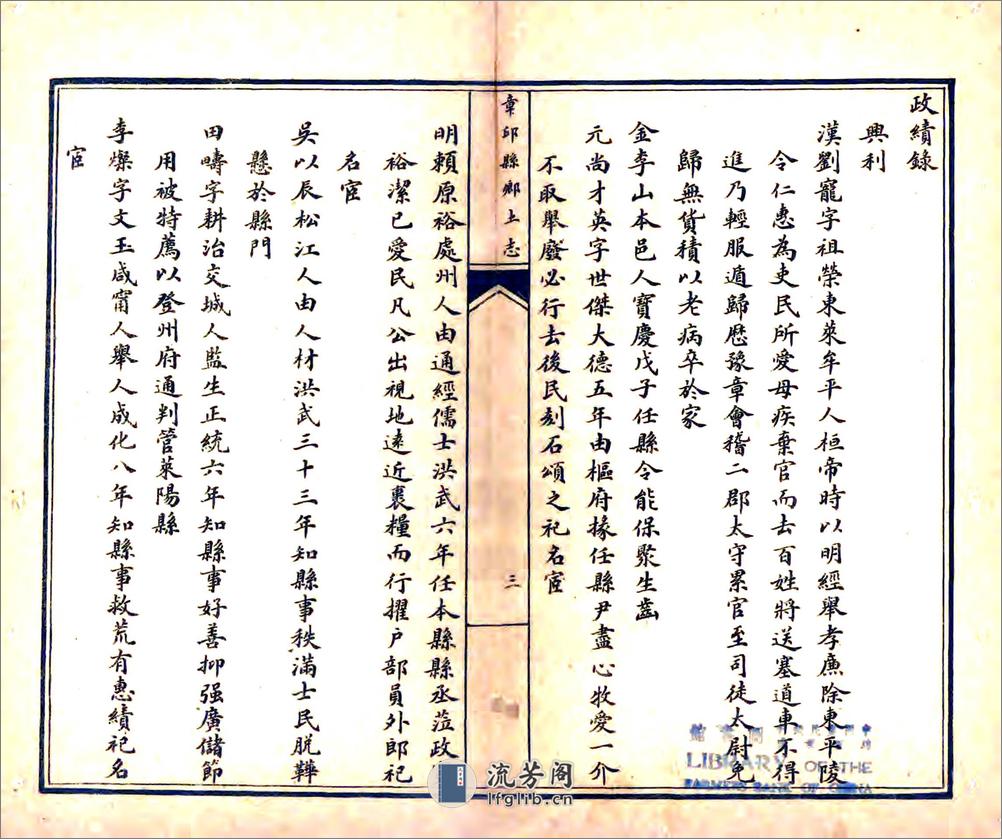 政績錄
興利
漢劉寵字祖榮東萊牟平人桓帝時以明經舉孝廉除東平陵
令仁惠為吏民所愛母疾棄官而去百姓將送塞道車不得
進乃輕服遁歸歷豫章會稽二郡太守累官至司徒太尉免
歸無貨積以老病卒於家
金李山本邑人寶慶戊子任縣令能保聚生齒
元尚才英字世傑大德五年由樞府掾任縣尹盡心牧愛一介
不取舉廢必行去後民刻石頌之祀名宦
章邱縣鄉土志
三
明賴原裕處州人由通經儒士洪武六年任本縣縣丞蒞政寬
裕潔已愛民凡公出視地遠近裹糧而行擢户部員外郎祀
名宦
吳以辰松江人由人材洪武三十三年知縣事秩滿士民脫鞾
懸於縣門
田疇字耕治交城人監生正統六年知縣事好善抑强廣儲節
用被特薦以登州府通判管萊陽縣
李燦字文玉咸甯人舉人成化八年知縣事救荒有惠績祀名
宦
LIBRARY OF THE
FARMERS BANK OF CHINA
流芳阁
lfglib.cn